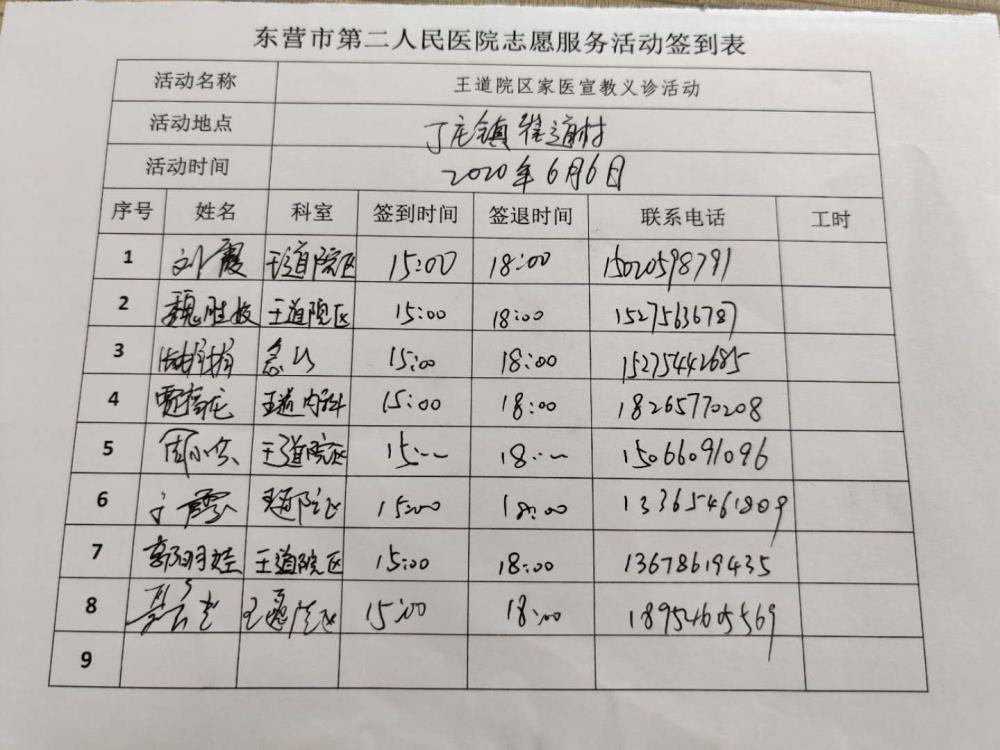 东营市第二人民医院志愿服务活动签到表
活动名称 王道院区家医宣教义诊活动
活动地点 丁庄镇崔道村
活动时间 2020年6月6日
序号 姓名 科室 签到时间 签退时间 联系电话 工时
1 刘霞 王道院区 15:00 18:00 15020598791
2 魏胜枝 王道院区 15:00 18:00 15275636787
3 15:00 18:00 15275442685
4 贾 龙 王道内科 15:00 18:00 18265770208
5 周小 王道院区 15:— 18:— 15066091096
6 于霞 王道院区 15:00 18:00 13365461809
7 郭 娃 王道院区 15:00 18:00 13678619435
8 王道院区 15:00 18:00 18954605569
9